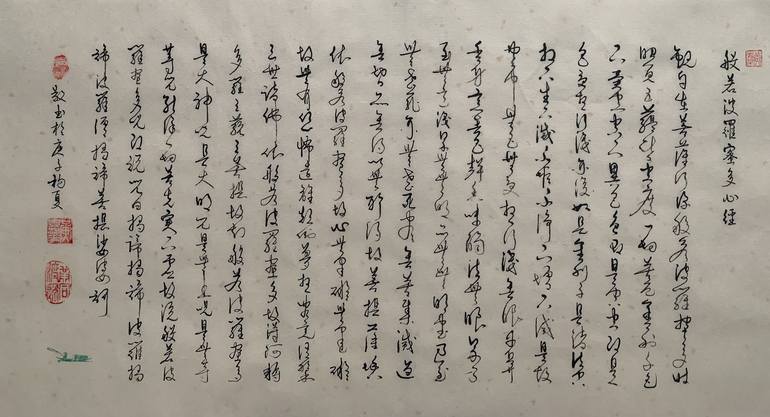 般若波羅蜜多心經
觀自在菩薩行深般若波羅蜜多時
照見五蘊皆空度一切苦厄舍利子色
不異空空不異色色即是空空即是
色受想行識亦復如是舍利子是諸法空
相不生不滅不垢不淨不增不減是故
空中無色無受想行識無眼耳鼻
舌身意無色聲香味觸法無眼界乃
至無意識界無無明亦無無明盡乃至
無老死亦無老死盡無苦集滅道
無智亦無得以無所得故菩提薩埵
依般若波羅蜜多故心無罣礙無罣礙
故無有恐怖遠離顛倒夢想究竟涅槃
三世諸佛依般若波羅蜜多故得阿耨
多羅三藐三菩提故知般若波羅蜜多
是大神咒是大明咒是無上咒是無等
等咒能除一切苦真實不虛故說般若波
羅蜜多咒即說咒曰揭諦揭諦波羅揭
諦波羅僧揭諦菩提娑婆訶
敬書於庚子初夏